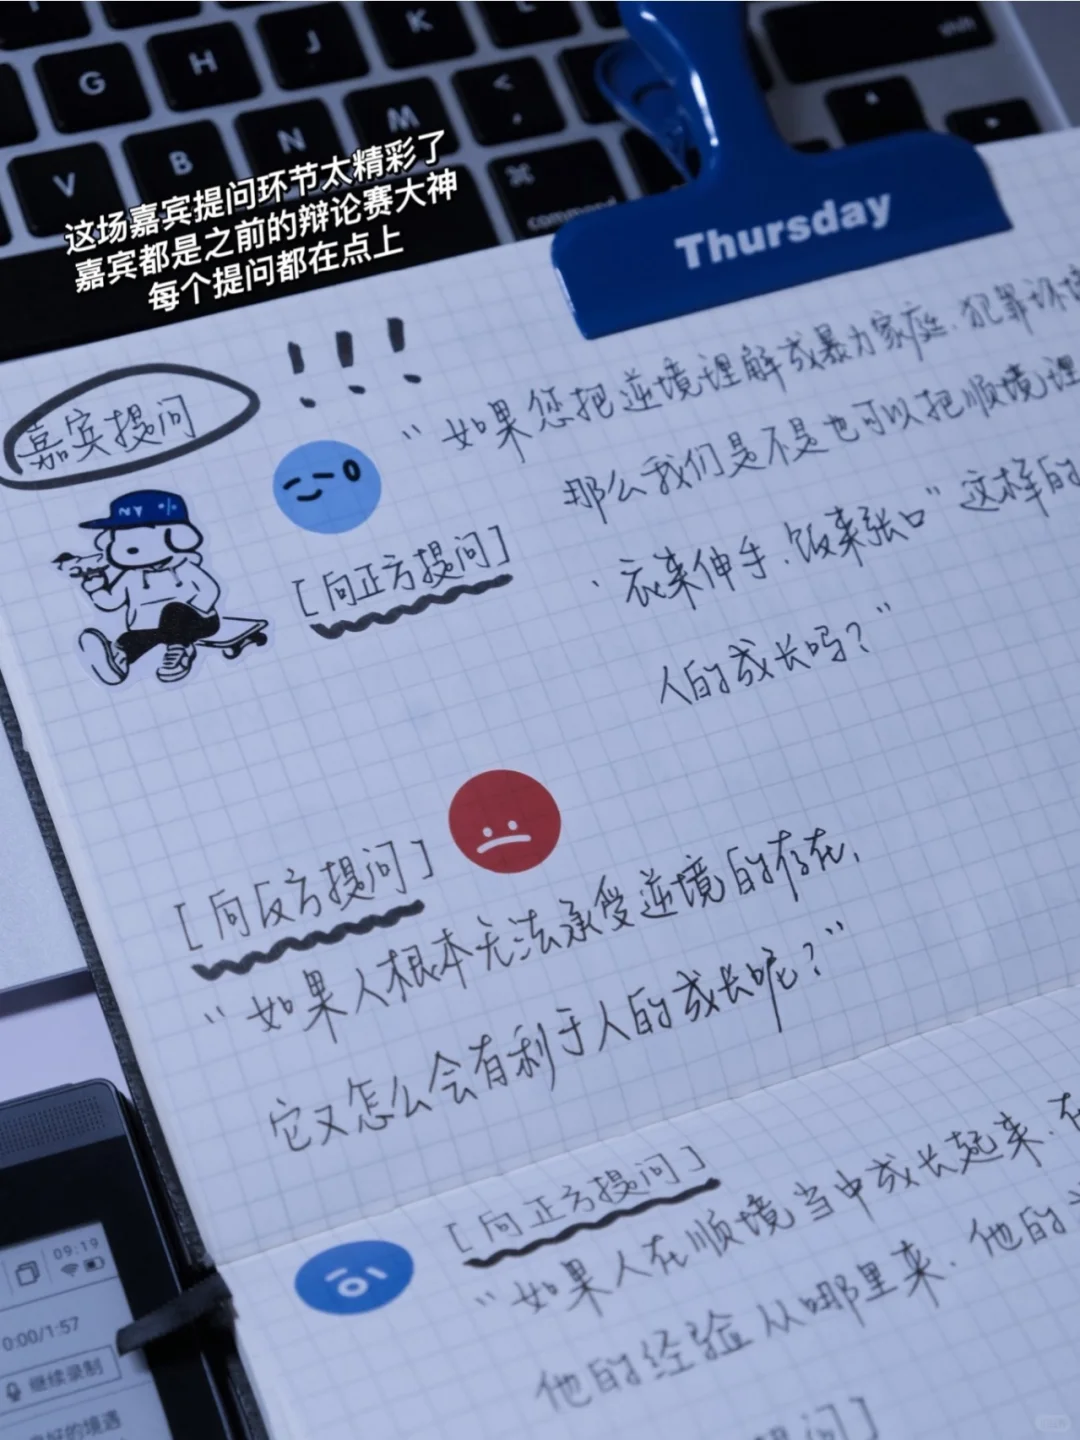 G
H
J
K
L
V
B
N
M
<
,
⌘
command
shift
这场嘉宾提问环节太精彩了
嘉宾都是之前的辩论赛大神
每个提问都在点上
Thursday
嘉宾提问
!!!
NY
[向正方提问]
“如果您把逆境理解成暴力家庭、犯罪环境
那么我们是不是也可以把顺境理
衣来伸手、饭来张口”这样的
人的成长吗?”
[向反方提问]
“如果人根本无法承受逆境的存在,
它又怎么会有利于人的成长呢?”
[向正方提问]
“如果人在顺境当中成长起来,在
他的经验从哪里来,他的
提问]
09:19
0:00/1:57
继续录制
好的境遇